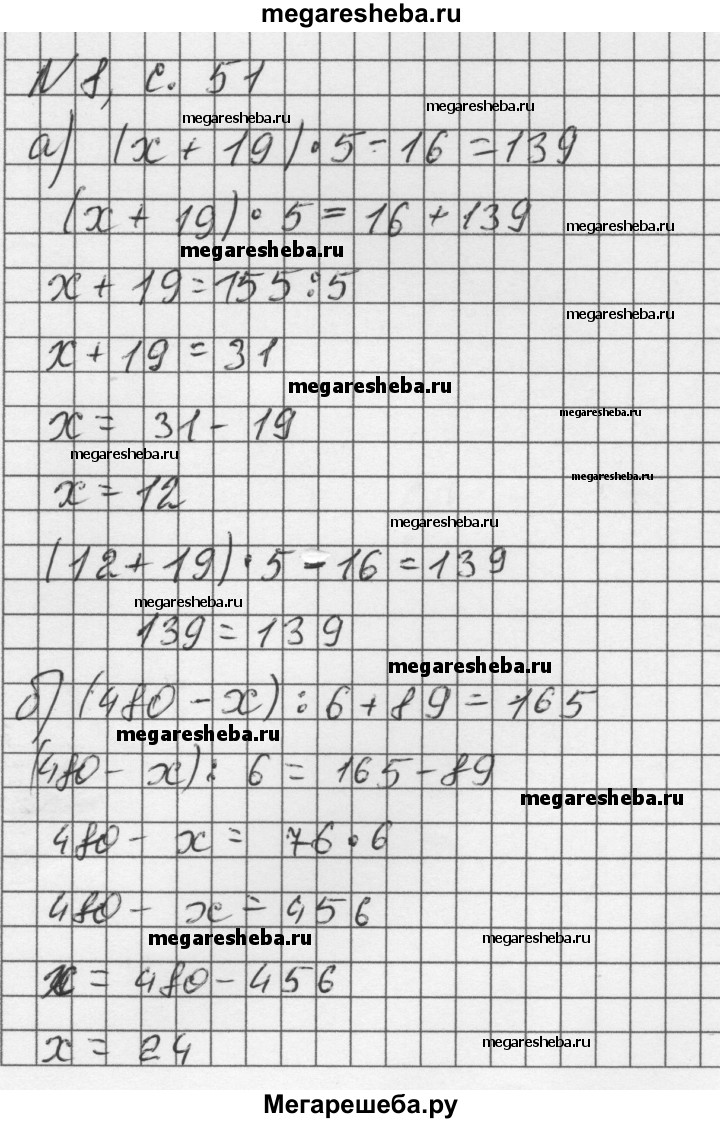 megaresheba.ru
N 8, с. 51
megaresheba.ru
megaresheba.ru
а) (x + 19) · 5 - 16 = 139
(x + 19) · 5 = 16 + 139
megaresheba.ru
megaresheba.ru
x + 19 = 155 : 5
megaresheba.ru
x + 19 = 31
megaresheba.ru
megaresheba.ru
x = 31 - 19
megaresheba.ru
megaresheba.ru
x = 12
megaresheba.ru
(12 + 19) · 5 - 16 = 139
megaresheba.ru
139 = 139
megaresheba.ru
б) (480 - x) : 6 + 89 = 165
megaresheba.ru
(480 - x) : 6 = 165 - 89
megaresheba.ru
480 - x = 76 · 6
480 - x = 456
megaresheba.ru
megaresheba.ru
x = 480 - 456
x = 24
megaresheba.ru
Мегарешеба.ру